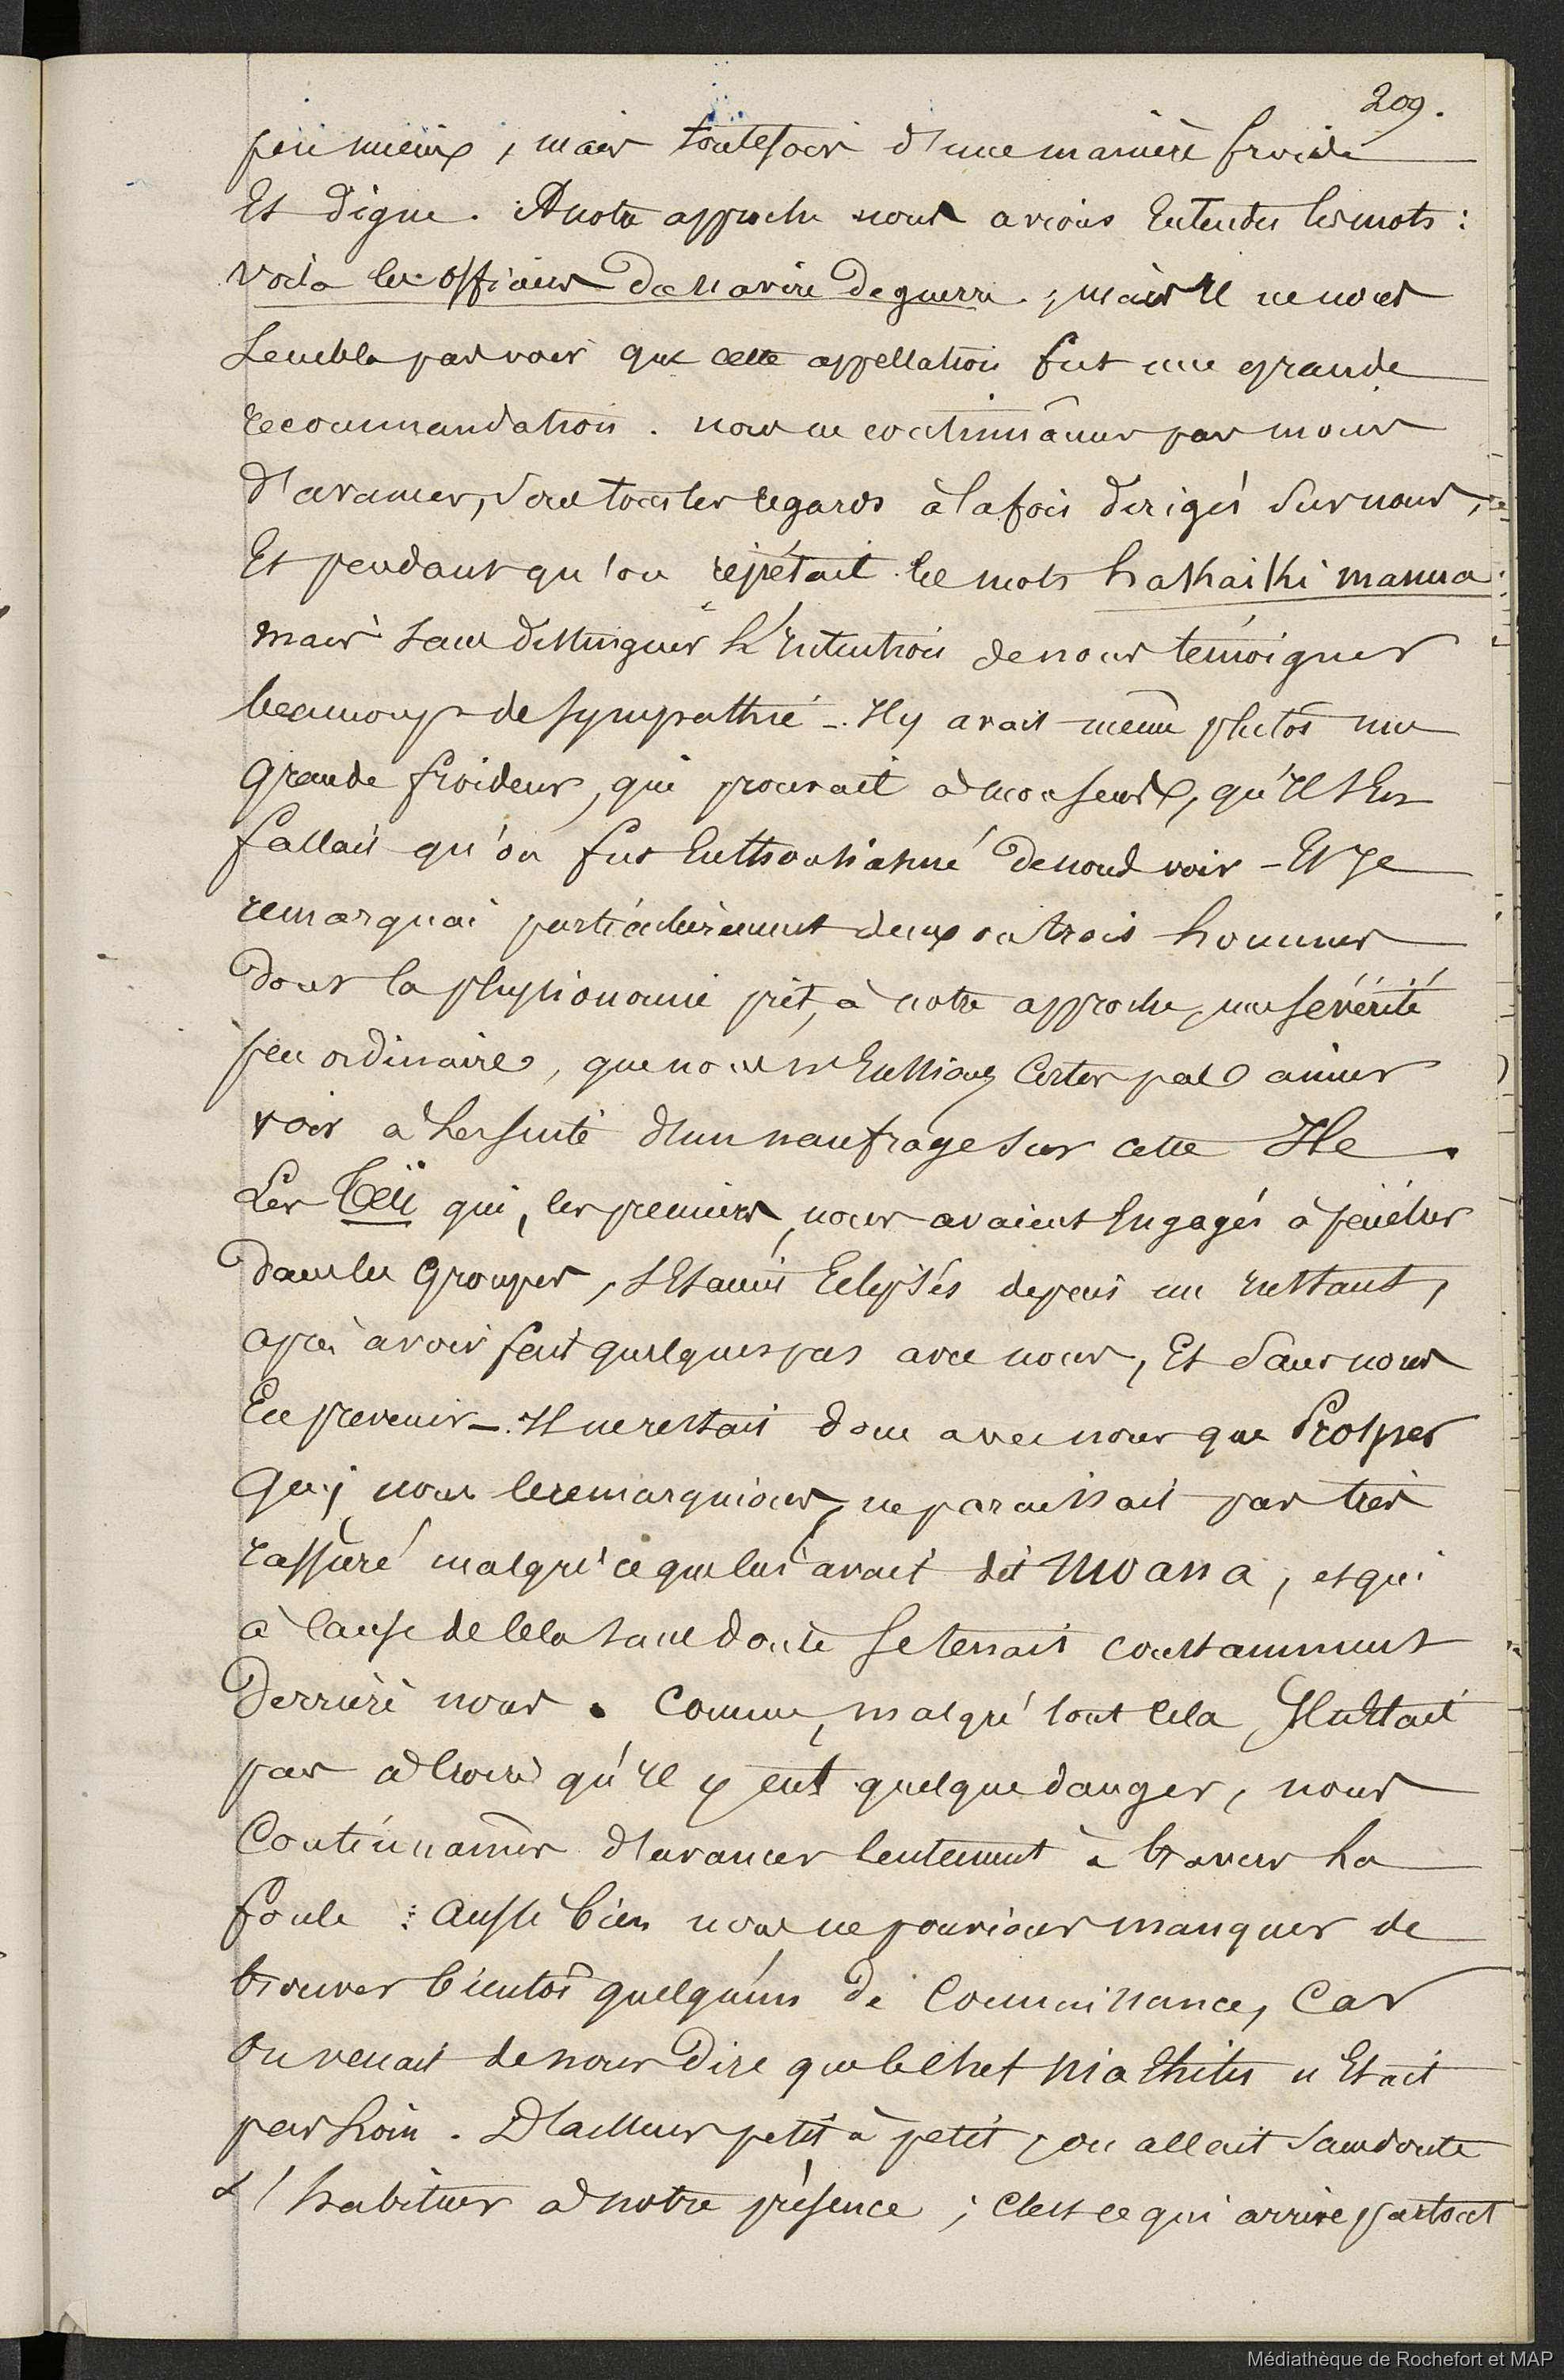 209.
peu mieux, mais toutefois d'une manière froide
Et digne. A notre approche nous avions Entendu les mots :
voilà les officiers du navire de guerre ; mais Il ne nous
Sembla pas voir que cette appellation fut une grande
recommandation. nous ne continuâmes pas moins
d'avancer, sous tous les regards à la fois dirigés sur nous,
Et pendant qu'on répétait les mots hakaiki manua
mais sans distinguer l'Intention de nous témoigner
beaucoup de sympathie _. Il y avait même plutôt une
grande froideur, qui prouvait à mon sens, qu'Il s'En
fallait qu'on fut Enthousiasmé de nous voir – Et Je
remarquai particulièrement deux ou trois hommes
dont la physionomie prit, à notre approche, une sévérité
peu ordinaire, que nous n'Eussions Certes pas aimer
voir à la suite d'un naufrage sur cette Ile.
Les Teïi qui, les premiers, nous avaient Engagés à pénétrer
dans les Groupes, s'Etaient Eclipsés depuis un Instant,
après avoir fait quelques pas avec nous, Et sans nous
En prevenir _. Il ne restait donc avec nous que Prosper
qui, nous le remarquions, ne paraissait pas très
rassuré malgré ce que lui avait dit Moana, et qui
à Cause de Cela sans doute se tenait constamment
Derrière nous. Comme, malgré tout Cela Il n'Etait
pas à Croire qu'Il y eut quelque danger, nous
Continuâmes d'avancer lentement à travers la
foule : Aussi bien nous ne pouvions manquer de
trouver bientôt quelqu'un de Connaissance, Car
On venait de nous Dire que le chef niahitu n'Etait
pas loin. D'ailleurs petit à petit, on allait sans doute
s'habituer à notre présence ; C'est ce qui arrive partout
Médiathèque de Rochefort et MAP